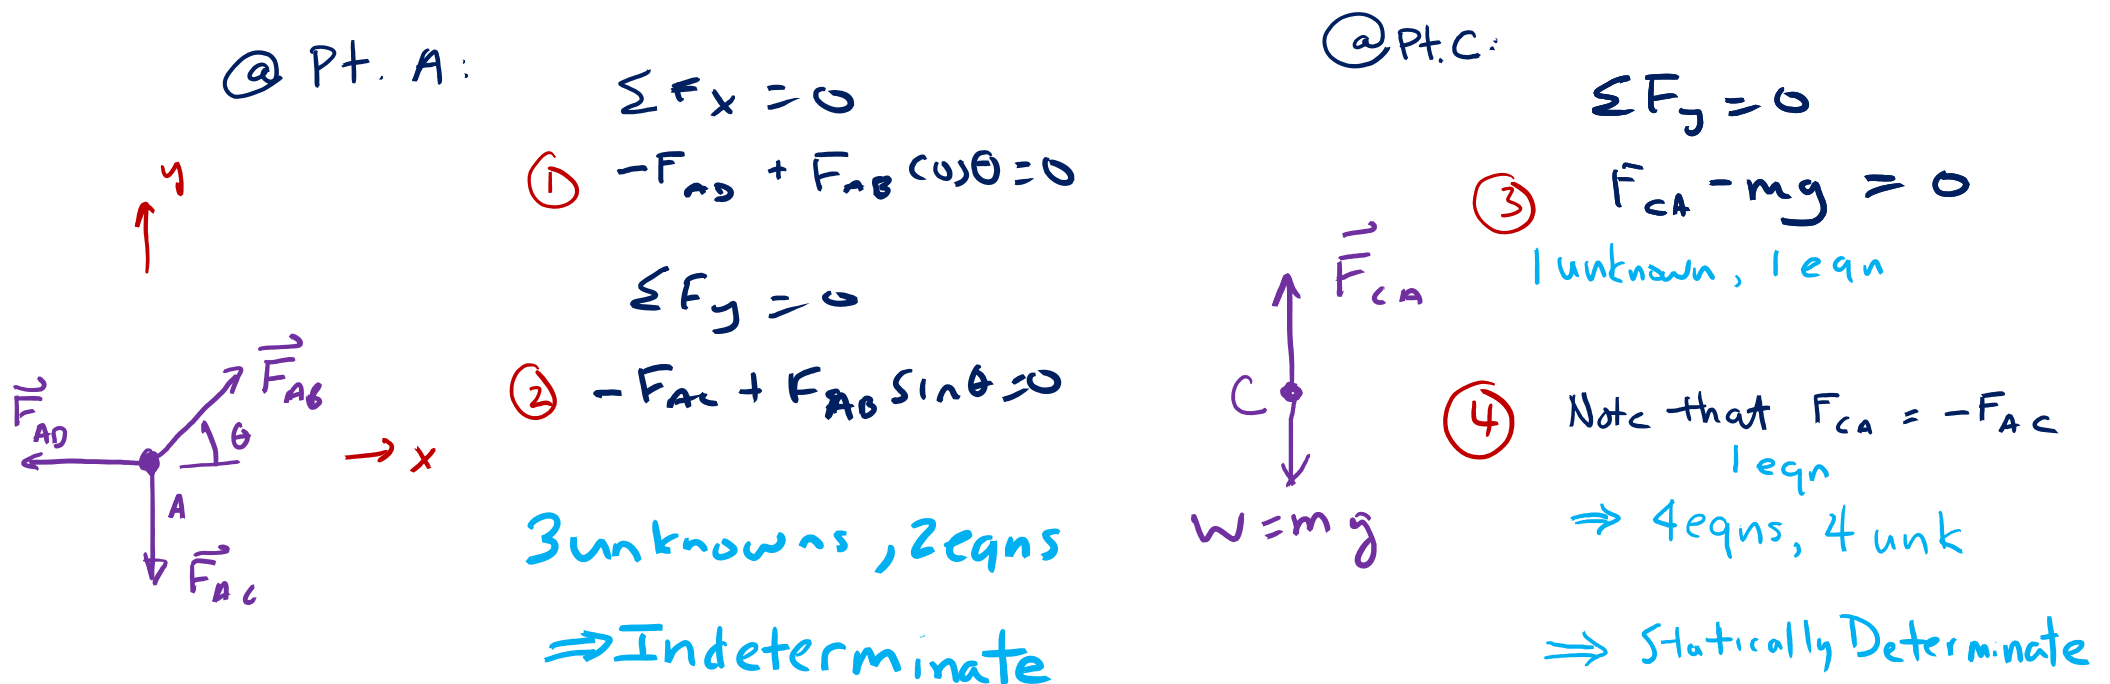 @ Pt. A:
ΣFx = 0
① -F_AD + F_AB cosθ = 0
y
ΣFy = 0
② -F_AC + F_AB sinθ = 0
F_AB
F_AD
θ
x
A
F_AC
3 unknowns, 2 eqns
⇒ Indeterminate
@ Pt. C:
ΣFy = 0
③ F_CA - mg = 0
1 unknown, 1 eqn
F_CA
C
W = mg
④ Note that F_CA = -F_AC
1 eqn
⇒ 4 eqns, 4 unk
⇒ Statically Determinate